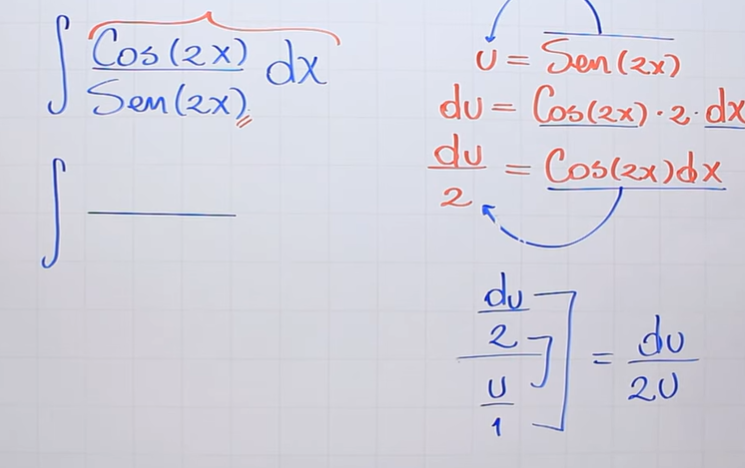 ∫ Cos(2x)/Sen(2x) dx
∫
u = Sen(2x)
du = Cos(2x) · 2 · dx
du/2 = Cos(2x)dx
(du/2)/(u/1) = du/2u